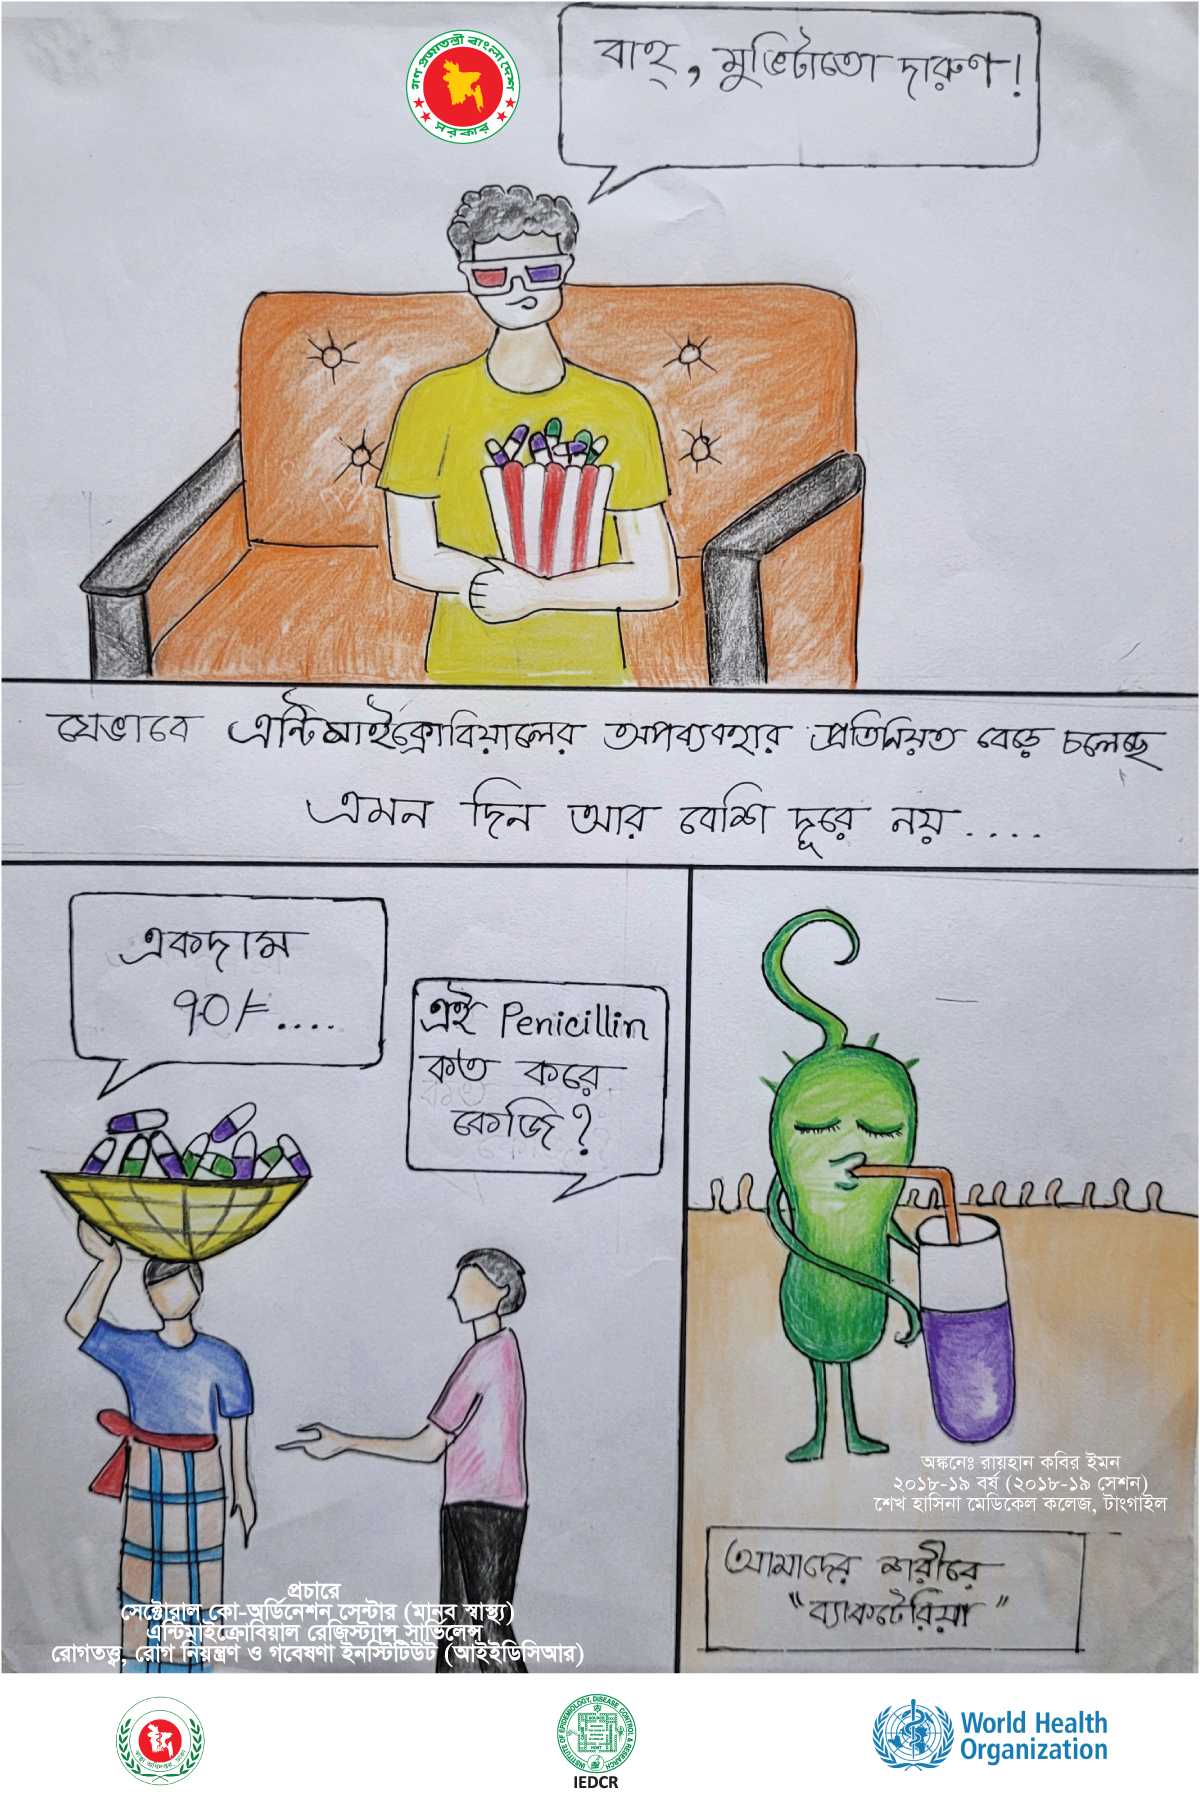 গণপ্রজাতন্ত্রী বাংলাদেশ
সরকার
বাহ্, মুভিটাতো দারুণ!
যেভাবে এন্টিমাইক্রোবিয়ালের অপব্যবহার প্রতিনিয়ত বেড়ে চলেছে
এমন দিন আর বেশি দূরে নয়....
একদাম
৭০/=....
এই Penicillin
কত করে
কেজি?
অঙ্কনেঃ রায়হান কবির ইমন
২০১৮-১৯ বর্ষ (২০১৮-১৯ সেশন)
শেখ হাসিনা মেডিকেল কলেজ, টাংগাইল
আমাদের শরীরে
"ব্যাকটেরিয়া"
প্রচারে
সেক্টোরাল কো-অর্ডিনেশন সেন্টার (মানব স্বাস্থ্য)
এন্টিমাইক্রোবিয়াল রেজিস্ট্যান্স সার্ভিলেন্স
রোগতত্ত্ব, রোগ নিয়ন্ত্রণ ও গবেষণা ইনস্টিটিউট (আইইডিসিআর)
INSTITUTE OF EPIDEMIOLOGY, DISEASE CONTROL & RESEARCH
IEDCR
World Health
Organization